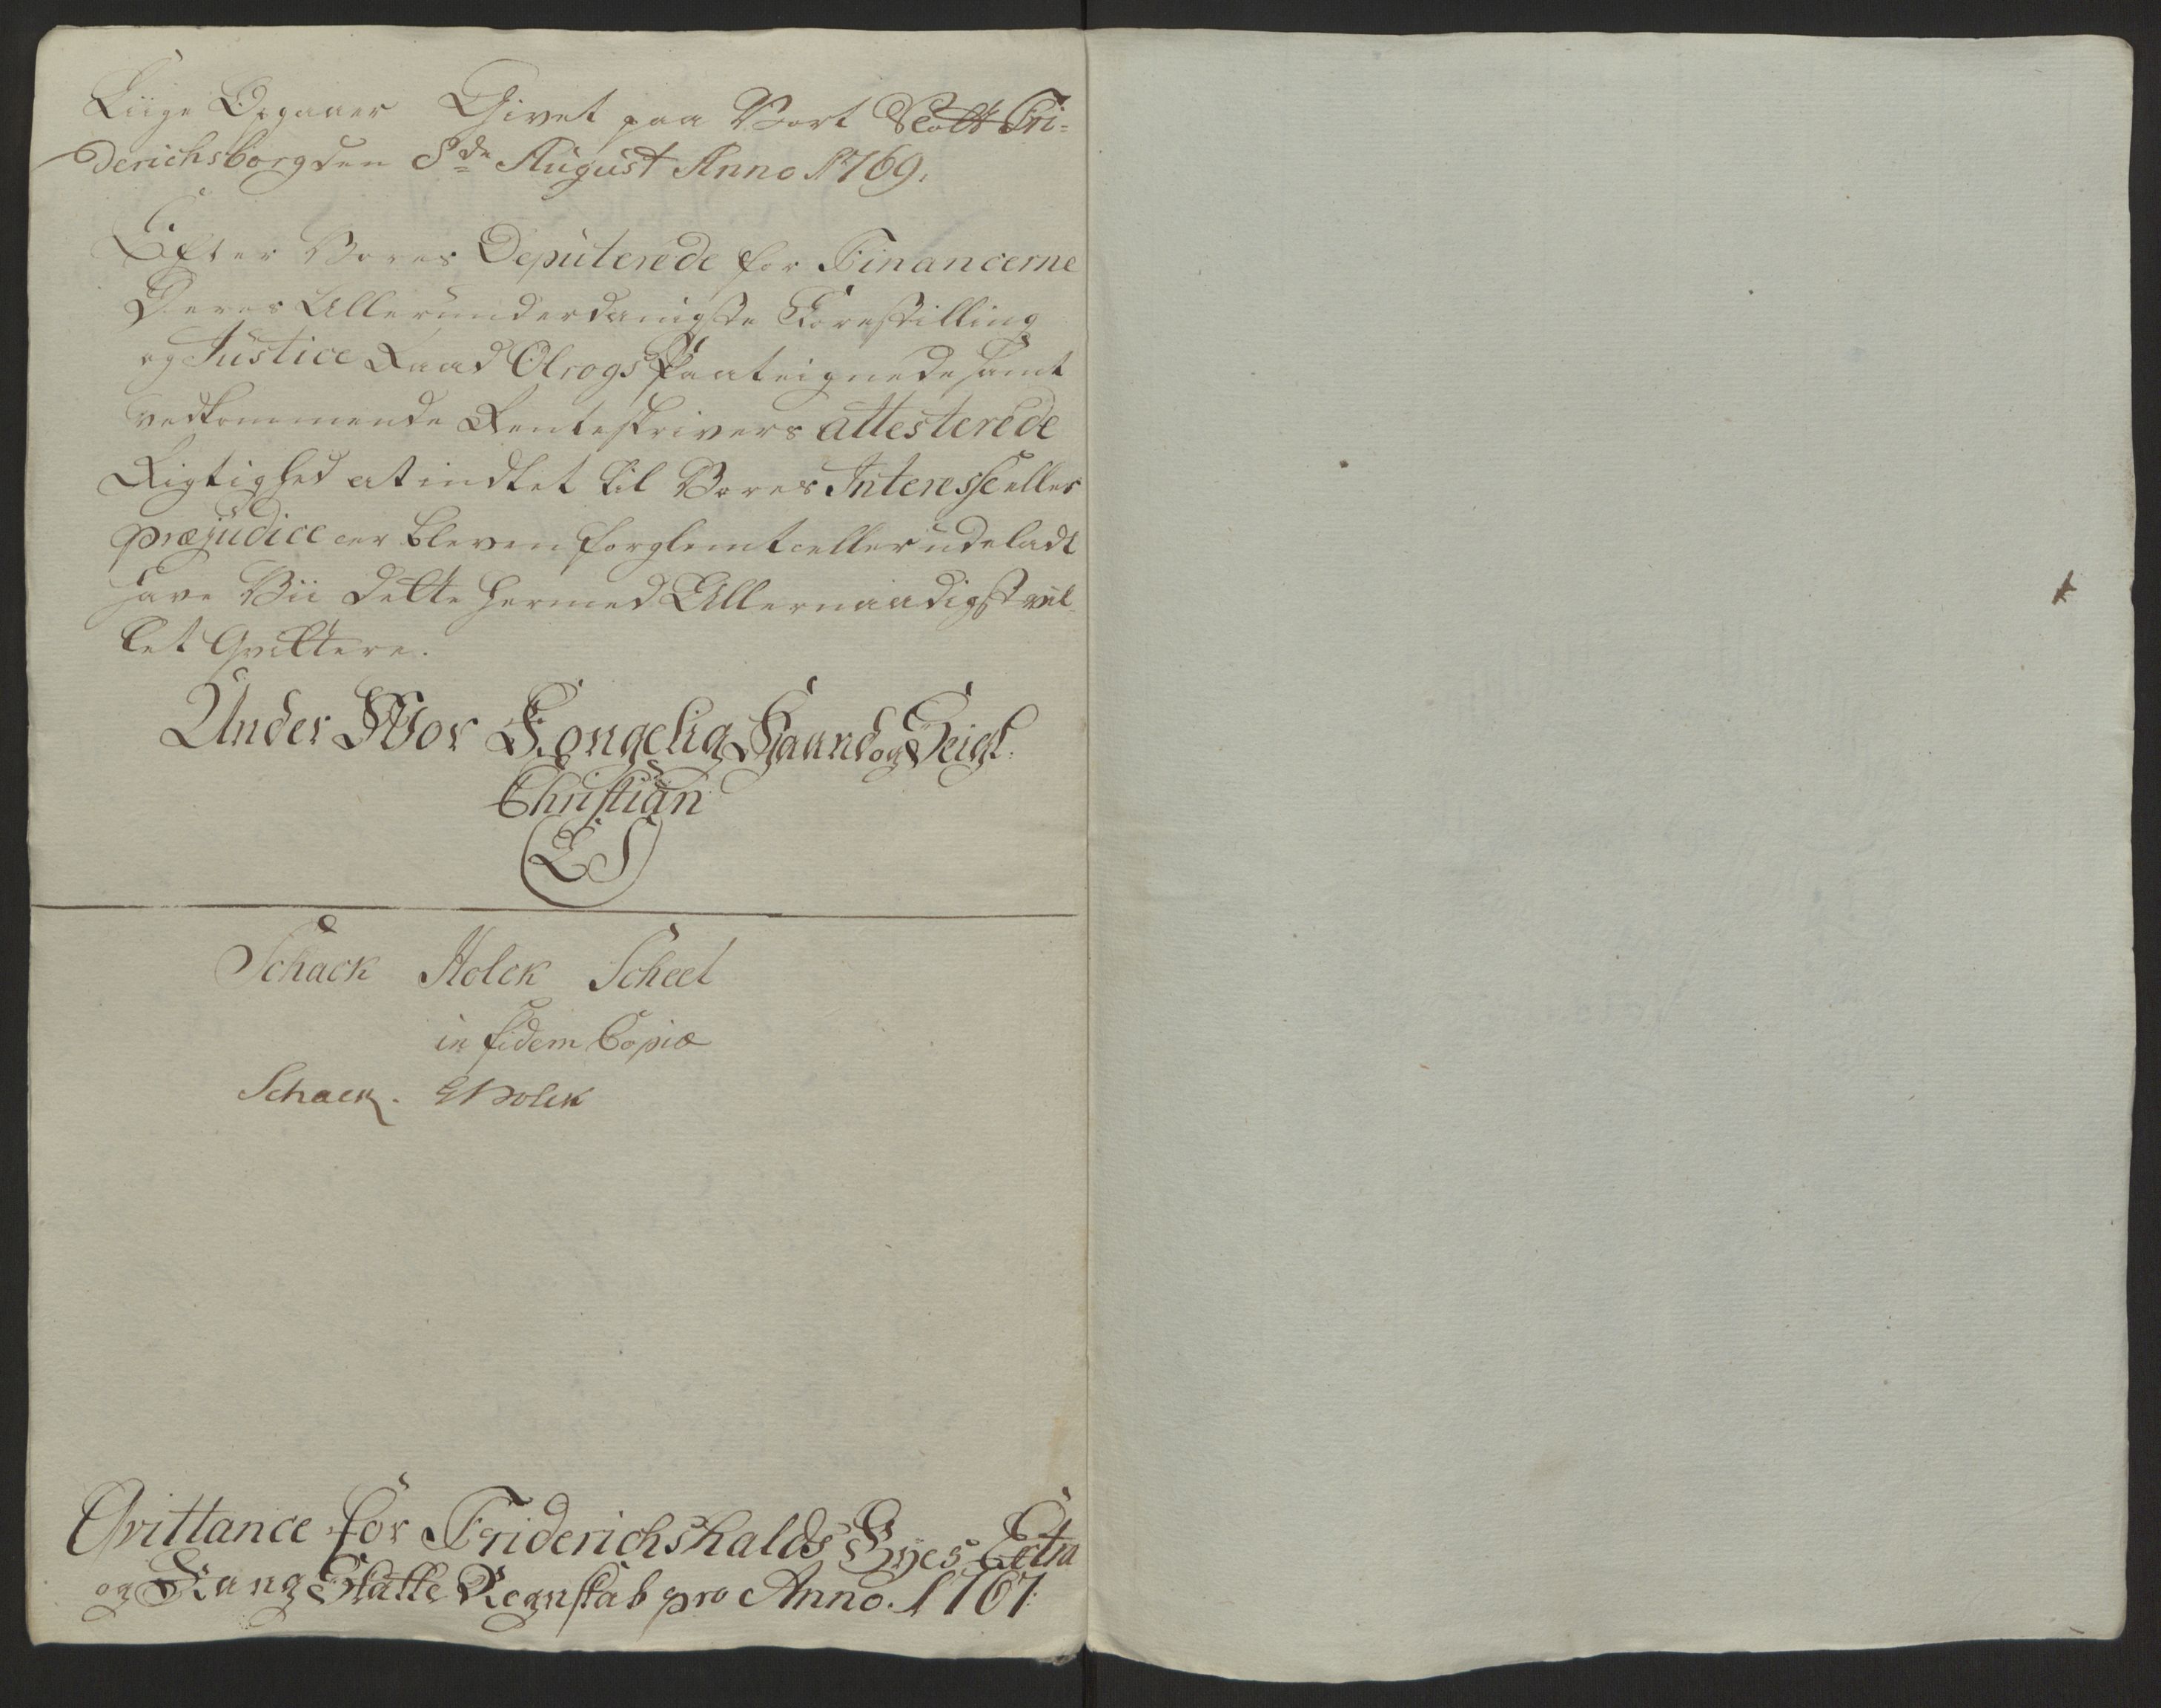 Liige Opgaaer Givet paa Vort Slott Fri-
derichsborg den 8de August Anno 1769.
Efter Vores Deputerede for Financerne
Deres Allerunderdanigste Forestilling
og Justice Raad Olrogs Paateignede samt
vedkommende Renteskrivers attesterede
Rigtighed at indtet til Vores Interesse eller
præjudice er bleven forglemt eller udeladt
have Vii dette hermed Allernaadigst vil-
let Qvittere.
Under Vor Kongelig Haand og Seigl.
Christian
LS
Schack Holck Scheel
in fidem Copiæ
Schack. Holck
Qvittance for Friderichshalds Byes Extra
og Rang Skatte Regnskab pro Anno. 1767.